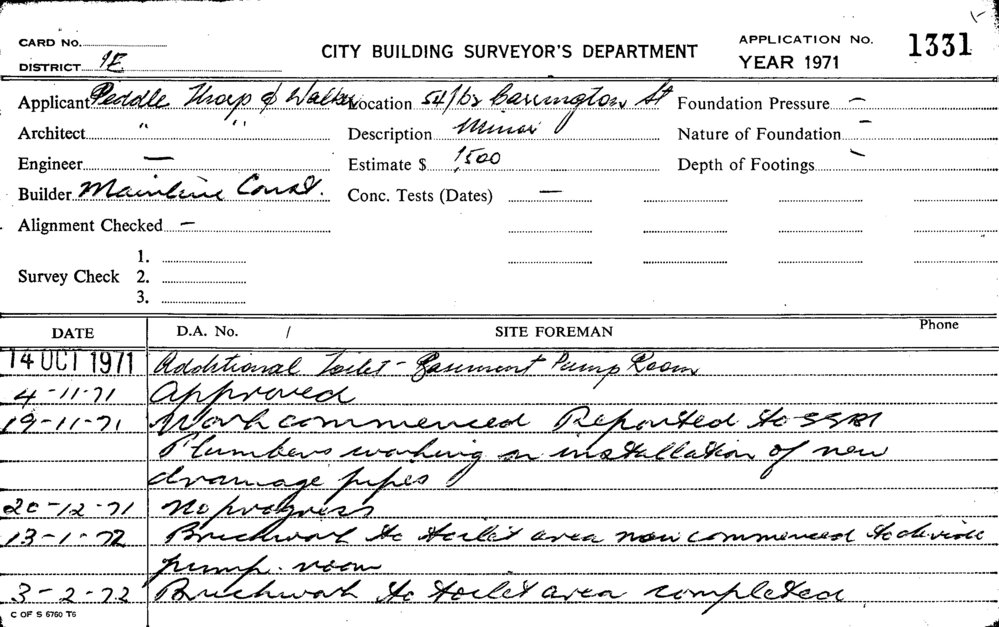 CARD NO.
DISTRICT 1E
CITY BUILDING SURVEYOR'S DEPARTMENT
APPLICATION NO. 1331
YEAR 1971
Applicant Peddle Thorp & Walker Location 54/62 Carrington St Foundation Pressure —
Architect " " Description Minor Nature of Foundation —
Engineer — Estimate $ 1500 Depth of Footings
Builder Mainline Const. Conc. Tests (Dates) —
Alignment Checked —
Survey Check 1.
2.
3.
DATE D.A. No. / SITE FOREMAN Phone
14 OCT 1971 Additional Toilet - Basement Pump Room
4-11-71 Approved
19-11-71 Work commenced Reported to SSBI
Plumbers working on installation of new
drainage pipes
20-12-71 No progress
13-1-72 Brickwork to toilet area now commenced to divide
pump room
3-2-72 Brickwork to toilet area completed
C OF S 6760 T6